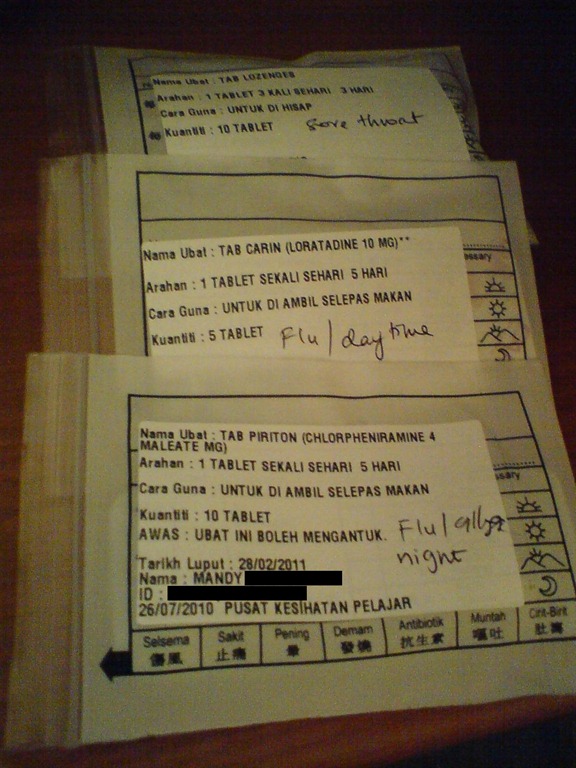 Nama Ubat : TAB LOZENGES
Arahan : 1 TABLET 3 KALI SEHARI 3 HARI
Cara Guna : UNTUK DI HISAP
Kuantiti : 10 TABLET sore throat
Nama Ubat : TAB CARIN (LORATADINE 10 MG)**
essary
Arahan : 1 TABLET SEKALI SEHARI 5 HARI
Cara Guna : UNTUK DI AMBIL SELEPAS MAKAN
Kuantiti : 5 TABLET Flu / day time
Nama Ubat : TAB PIRITON (CHLORPHENIRAMINE 4
MALEATE MG)
Arahan : 1 TABLET SEKALI SEHARI 5 HARI
ssary
Cara Guna : UNTUK DI AMBIL SELEPAS MAKAN
Kuantiti : 10 TABLET
AWAS : UBAT INI BOLEH MENGANTUK. Flu /
night
Tarikh Luput : 28/02/2011
Nama : MANDY
ID :
26/07/2010 PUSAT KESIHATAN PELAJAR
Selsema Sakit Pening Demam Antibiotik Muntah Cirit-Birit
傷風 止痛 暈 發燒 抗生素 嘔吐 肚瀉